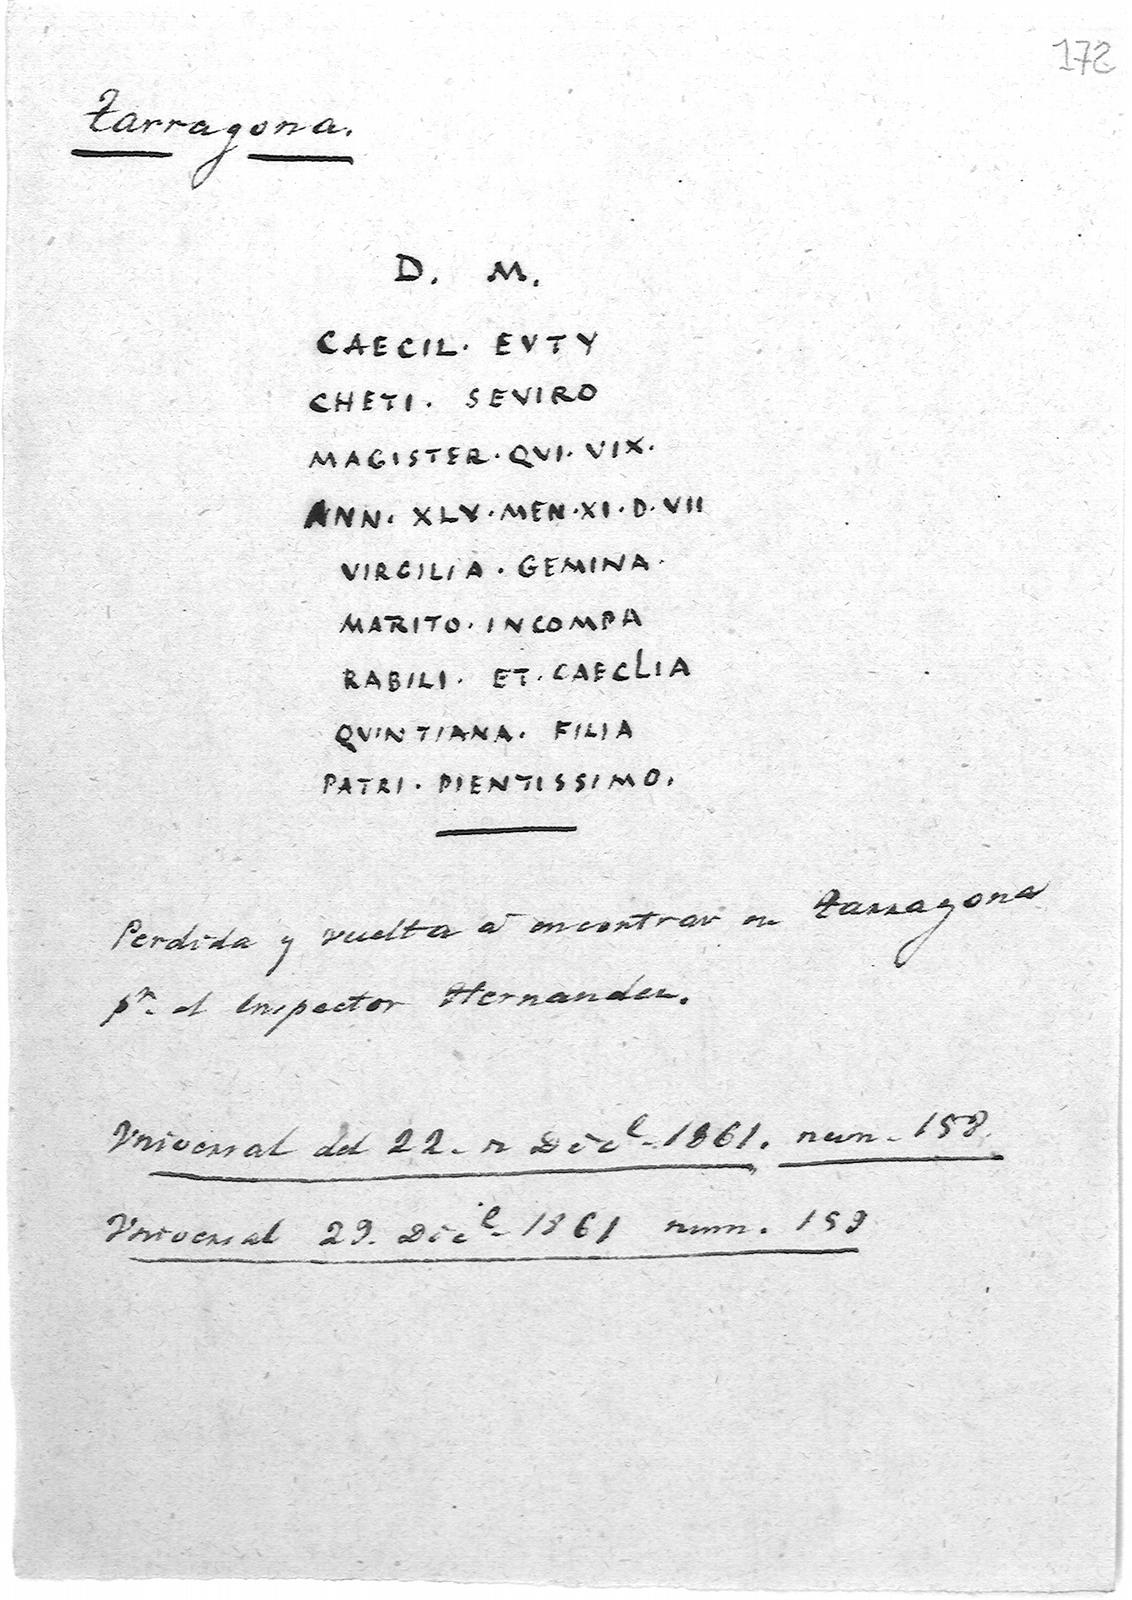 172
Tarragona.
D. M.
CAECIL. EVTY
CHETI. SEVIRO
MAGISTER. QVI. VIX.
ANN. XLV. MEN. XI. D. VII
VIRGILIA. GEMINA.
MARITO. INCOMPA
RABILI. ET. CAECLIA
QVINTIANA. FILIA
PATRI. PIENTISSIMO.
Perdida y vuelta á encontrar en Tarragona
pr. el Inspector Hernandez.
Universal del 22. Dice. 1861. num. 158.
Universal 29. Dice. 1861 num. 159